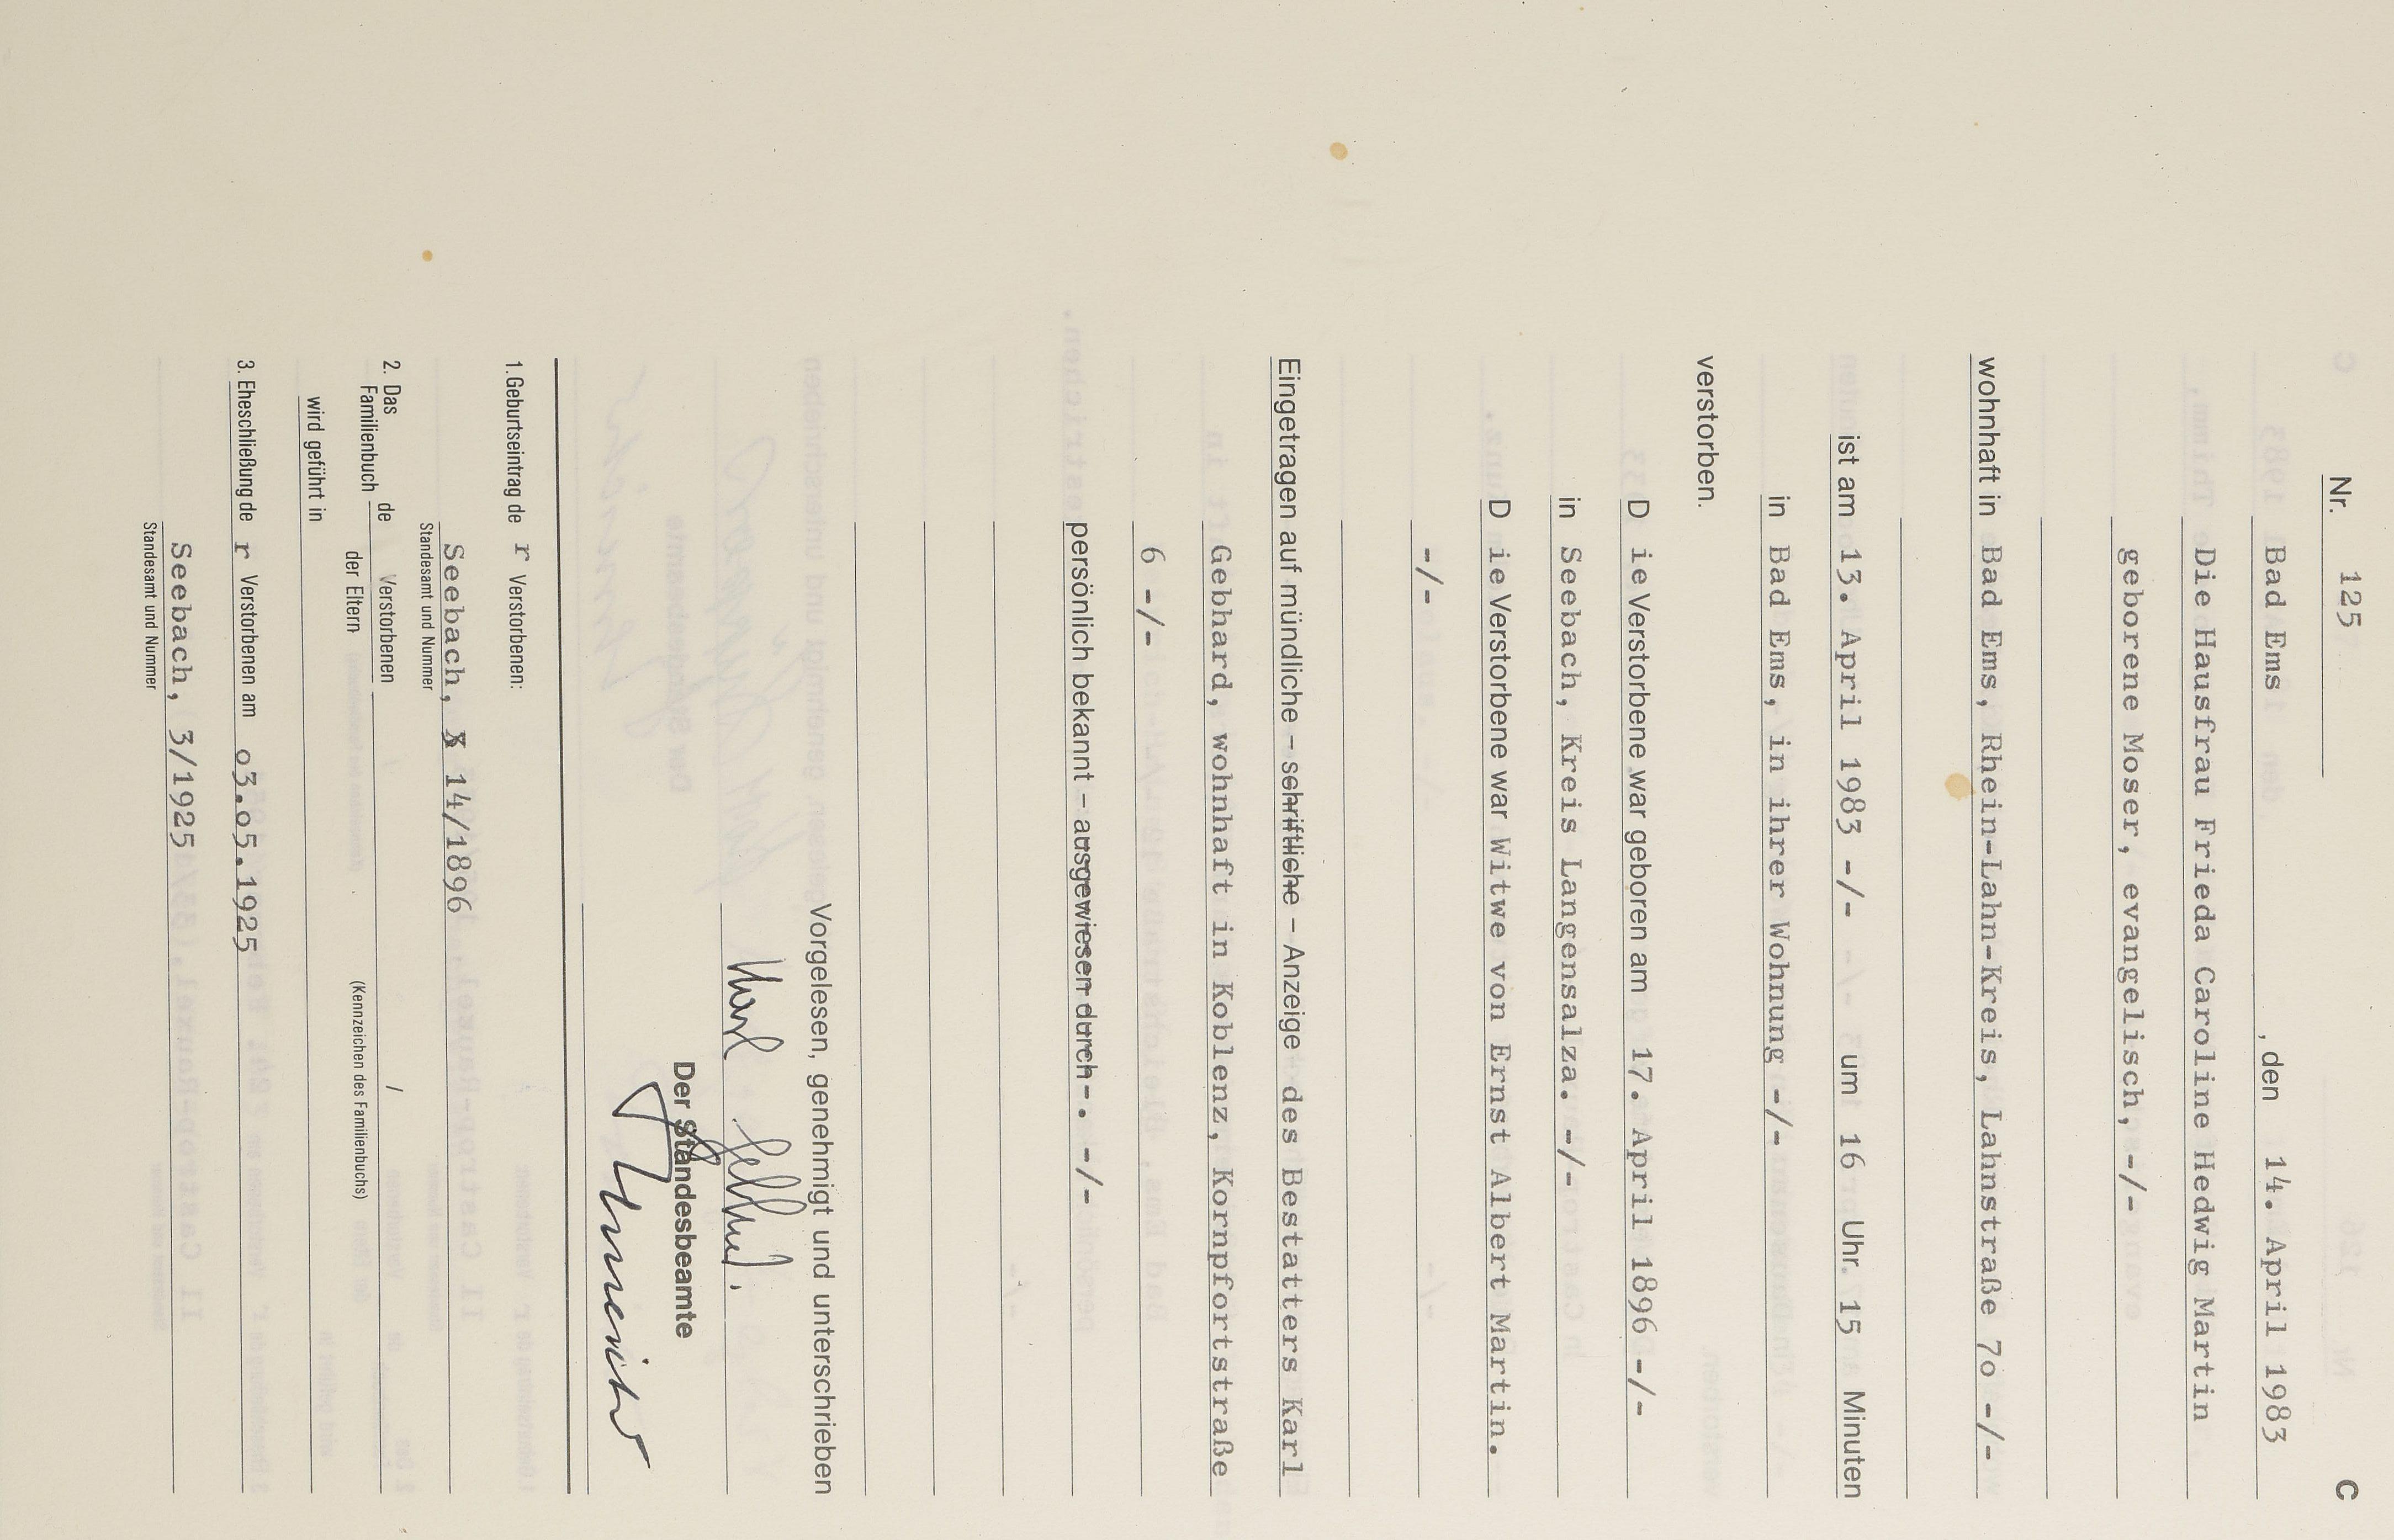 Nr. 125 C
Bad Ems , den 14. April 1983
Die Hausfrau Frieda Caroline Hedwig Martin
geborene Moser, evangelisch, -/-
wohnhaft in Bad Ems, Rhein-Lahn-Kreis, Lahnstraße 7o -/-
ist am 13. April 1983 -/- um 16 Uhr 15 Minuten
in Bad Ems, in ihrer Wohnung -/-
verstorben.
D ie Verstorbene war geboren am 17. April 1896 -/-
in Seebach, Kreis Langensalza. -/-
D ie Verstorbene war Witwe von Ernst Albert Martin.
-/-
Eingetragen auf mündliche – schriftliche – Anzeige des Bestatters Karl
Gebhard, wohnhaft in Koblenz, Kornpfortstraße
6 -/-
persönlich bekannt – ausgewiesen durch -. -/-
Vorgelesen, genehmigt und unterschrieben
Karl Gebhard.
Der Standesbeamte
1. Geburtseintrag de r Verstorbenen:
Seebach, X 14/1896
Standesamt und Nummer
2. Das Familienbuch de / Verstorbenen der Eltern /
(Kennzeichen des Familienbuchs)
wird geführt in
3. Eheschließung de r Verstorbenen am o3.o5.1925
Seebach, 3/1925
Standesamt und Nummer